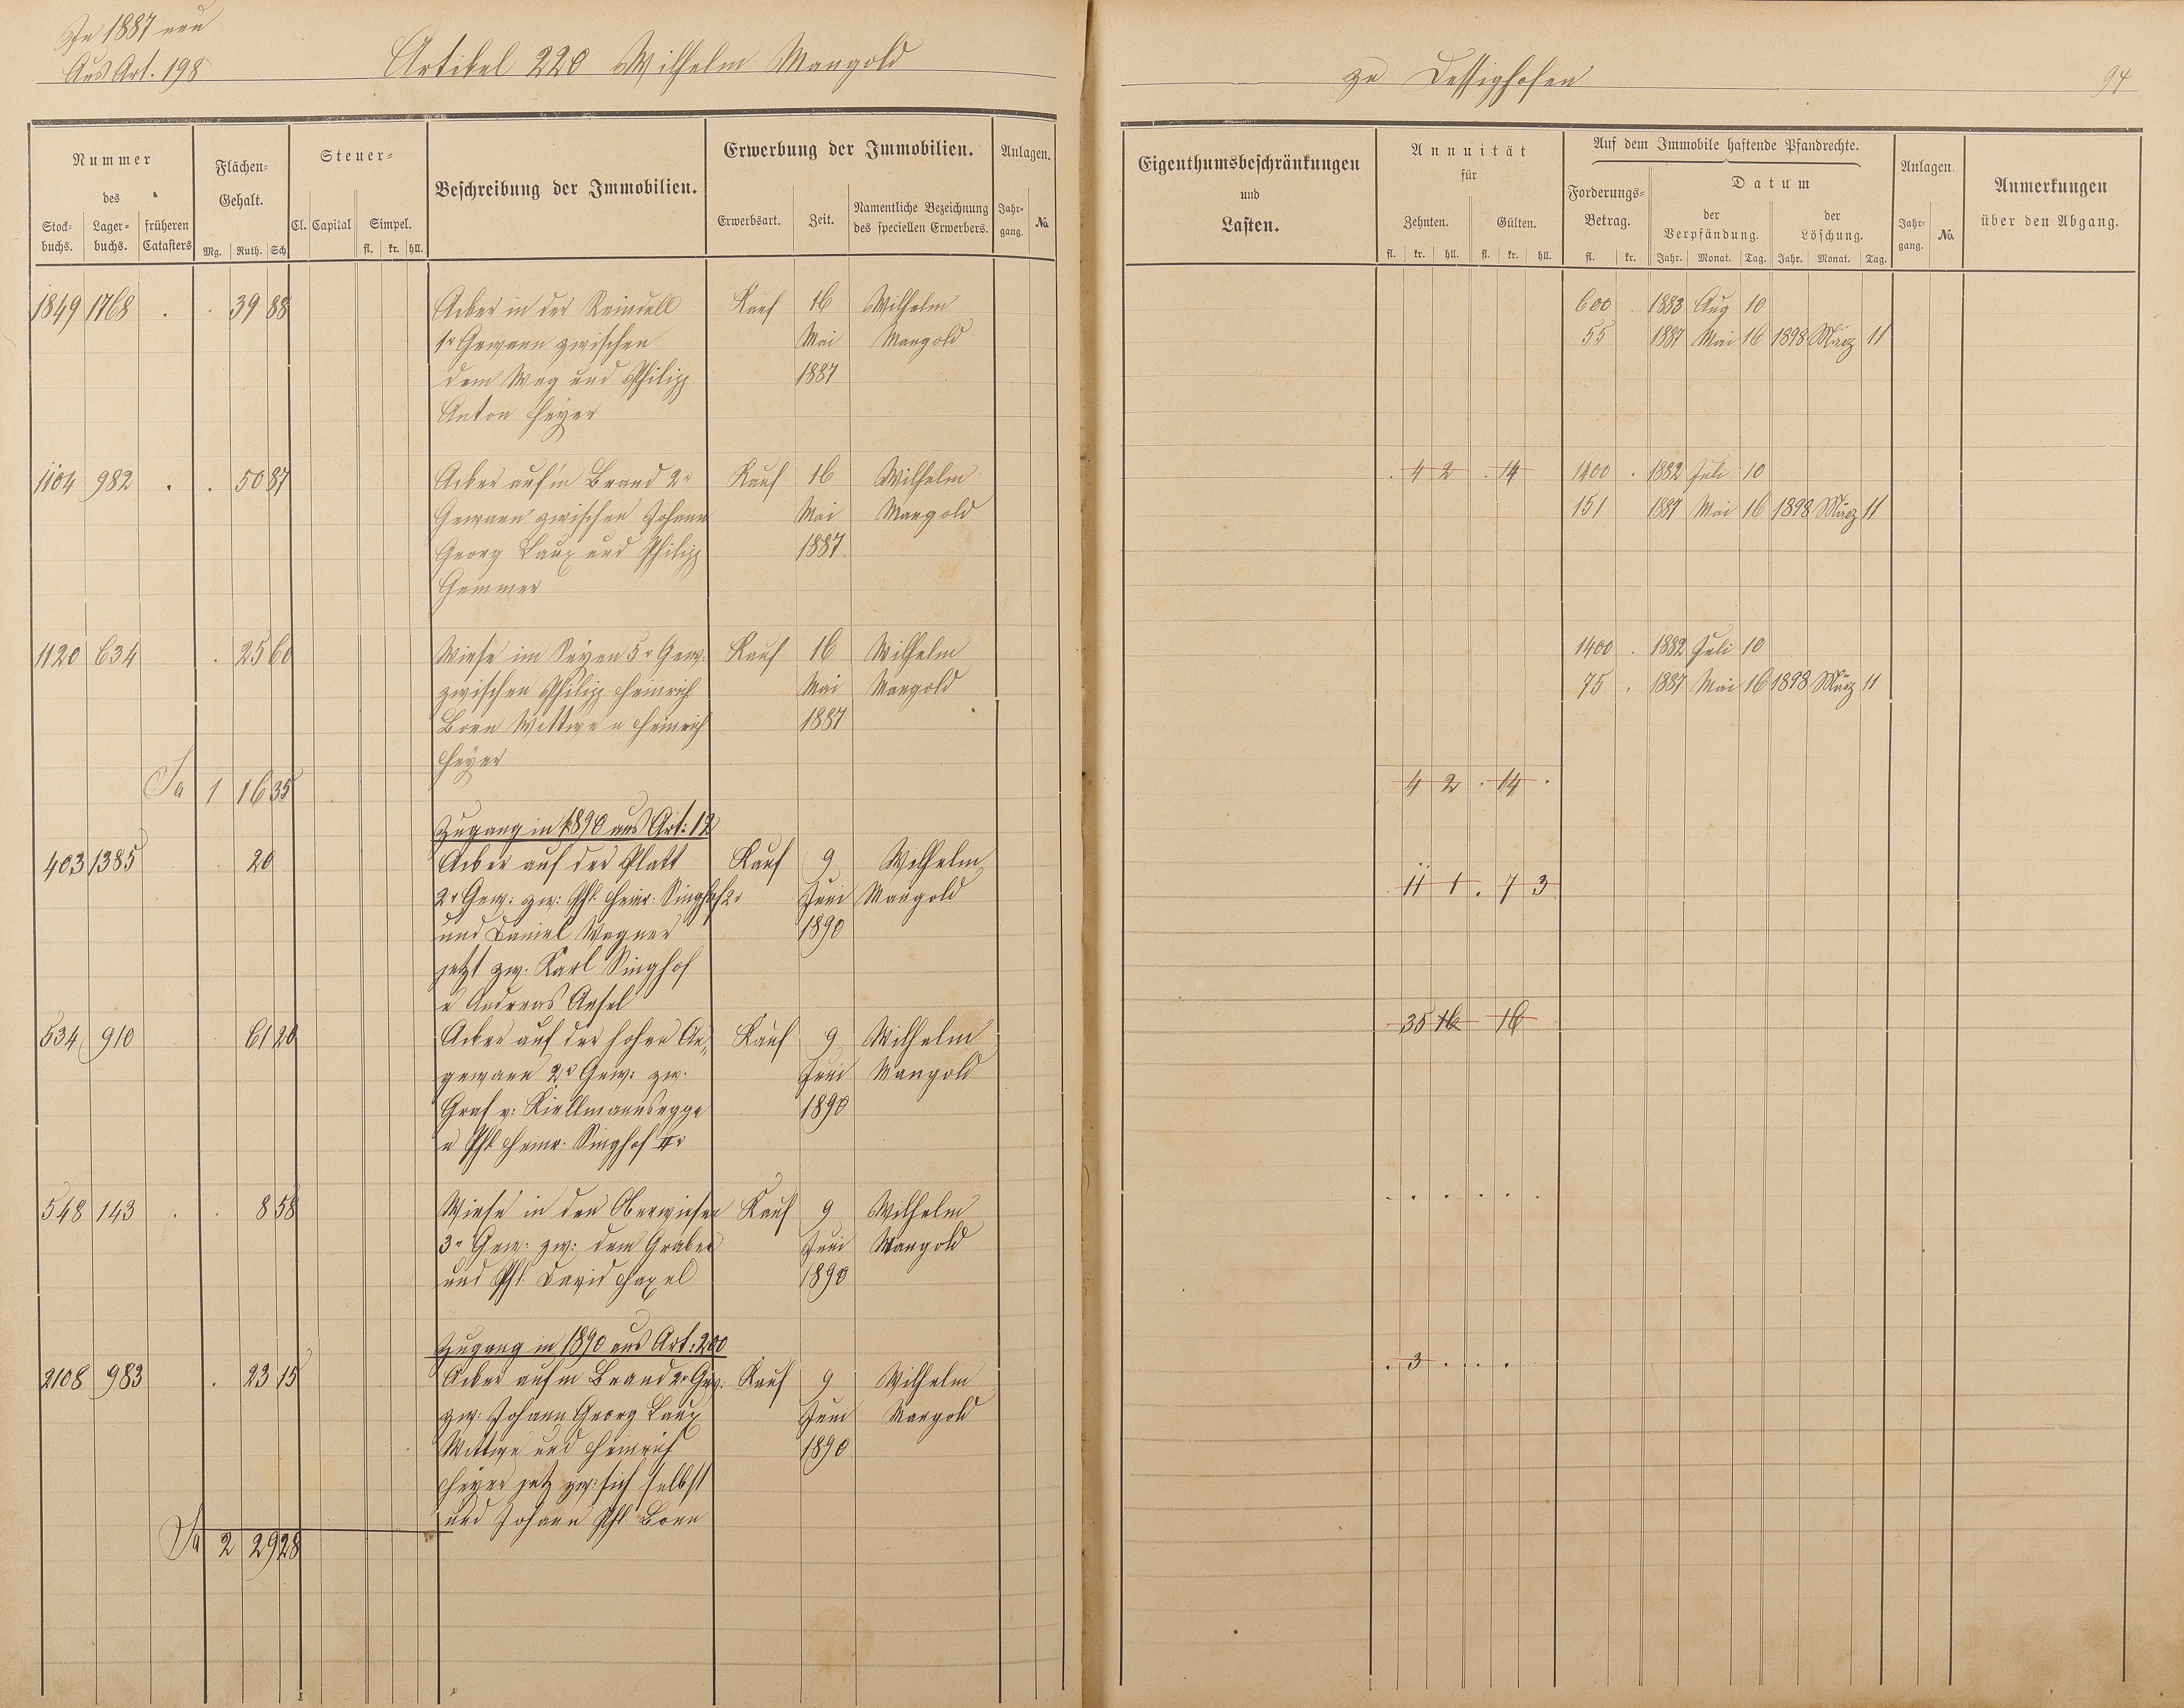 In 1887 neu
Aus Art. 198
Artikel 220 Wilhelm Mangold
zu Dessighofen
94
Nummer
des
Stock-buchs. Lager-buchs. früheren Catasters
Flächen-Gehalt.
Mg. Ruth. Sch
Steuer-
Cl. Capital Simpel.
fl. kr. hll.
Beschreibung der Immobilien.
Erwerbung der Immobilien.
Erwerbsart. Zeit. Namentliche Bezeichnung des speciellen Erwerbers.
Anlagen.
Jahr-gang. No.
Eigenthumsbeschränkungen
und
Lasten.
Annuität
für
Zehnten. Gülten.
fl. kr. hll. fl. kr. hll.
Auf dem Immobile haftende Pfandrechte.
Forderungs-Betrag.
fl. kr.
Datum
der Verpfändung. der Löschung.
Jahr. Monat. Tag. Jahr. Monat. Tag.
Anlagen.
Jahr-gang. No.
Anmerkungen
über den Abgang.
1849 1768 . . 39 88 Acker in der Kauf 16 Wilhelm 600 . 1883 Aug 10
1r Gewann zwischen Mai Mangold 55 1887 Mai 16 1898 März 11
dem Weg und Philipp 1887
Anton Heyer
1104 982 . . 50 87 Acker auf'm Brand 2r Kauf 16 Wilhelm . 4 2 . 14 1400 . 1882 Juli 10
Gewann zwischen Johann Mai Mangold 151 1887 Mai 16 1898 März 11
Georg Laux und Philipp 1887
Gemmer
1120 634 . 25 60 Wiese im 5r Gew. Kauf 16 Wilhelm 1400 . 1882 Juli 10
zwischen Philipp Heinrich Mai Mangold 75 . 1887 Mai 16 1898 März 11
Born Wittwe u Heinrich 1887
Heyer
Sa 1 16 35 4 2 . 14 .
Zugang in 1890 aus Art: 12
403 1385 . 20 Acker auf der Platt Kauf 9 Wilhelm
2r Gew: zw: Phl. Heinr. Singhof 2r Juni Mangold . 11 1 . 7 3
und Daniel Wagner 1890
jetzt zw. Karl Singhof
u Andreas
534 910 61 20 Acker auf der hohen An- Kauf 9 Wilhelm 35 16 16
gewann 2r Gew: zw. Juni Mangold
Graf v: Kiellmannsegge 1890
u Phl. Heinr. Singhof IIr
548 143 . . 8 58 Wiese in den Oberwiesen Kauf 9 Wilhelm . . . . . .
3r Gew: zw: dem Graben Juni Mangold
und Phl. David Haxel 1890
Zugang in 1890 aus Art: 200
2108 983 . 23 15 Acker auf'm Brand 2r Gew. Kauf 9 Wilhelm . 3 . . . .
zw: Johann Georg Laux Juni Mangold
Wittwe und Heinrich 1890
Heyer jetz zw: sich selbst
und Johann Phl. Born
Sa 2 29 28